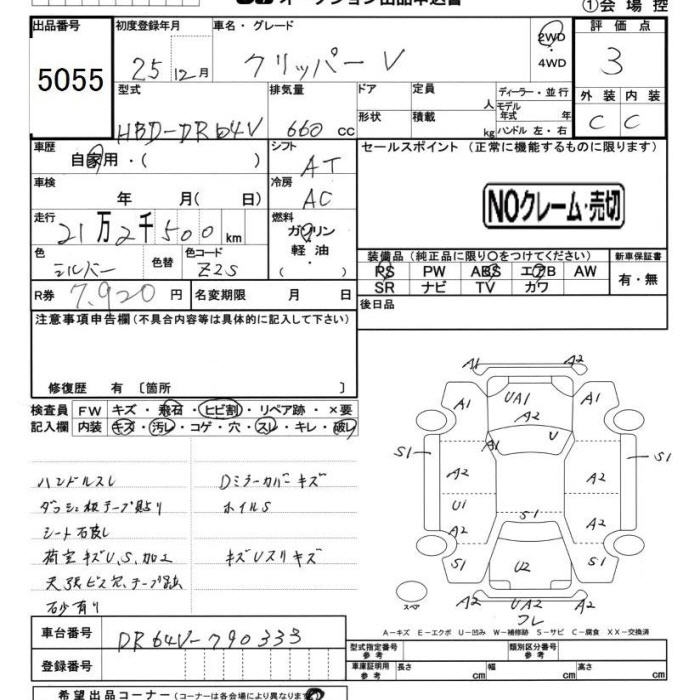 オークション出品申込書
①会 場 控
出品番号
5055
初度登録年月
25年12月
車名・グレード
クリッパー V
2WD
4WD
評 価 点
3
外 装
内 装
C
C
型式
HBD-DR64V
排気量
660 cc
ドア
形状
定員
人
積載
kg
ディーラー・並 行
モデル年式 年
ハンドル 左・右
車歴
自家用・( )
シフト
AT
車検
年 月( 日)
冷房
AC
走行
21万2千500 km
燃料
ガソリン
軽 油
・
色
シルバー
色替
色コード
Z2S
R券
7,920 円
名変期限 月 日
セールスポイント(正常に機能するものに限ります)
NOクレーム・売切
装備品(純正品に限り〇をつけてください)
PS PW ABS エアB AW
SR ナビ TV カワ
新車保証書
有・無
後日品
注意事項申告欄(不具合内容等は具体的に記入して下さい)
修復歴 有〔箇所 〕
検査員
記入欄
FW キズ・飛石・ヒビ割・リペア跡・×要
内装 キズ・汚レ・コゲ・穴・スレ・キレ・破レ
ハンドルスレ
ダッシュ板テープ貼り
シート石破し
荷室キズU,S,加工
天張ビス穴,テープ跡
石砂有り
Dミラーカバーキズ
ホイルS
キズUスリキズ
A1
A2
A1
UA1
A2
A1
U
S1
S1
A2
A2
U1
A2
S1
A2
S1
U2
S1
A2
UA2
A2
フレ
スペア
A-キズ E-エクボ U-凹み W-補修跡 S-サビ C-腐食 XX-交換済
車台番号
DR64V-790333
登録番号
型式指定番号
参 考
類別区分番号
参 考
車庫証明用
参 考
長さ cm
幅 cm
高さ cm
希望出品コーナー(コーナーは各会場により異なります)